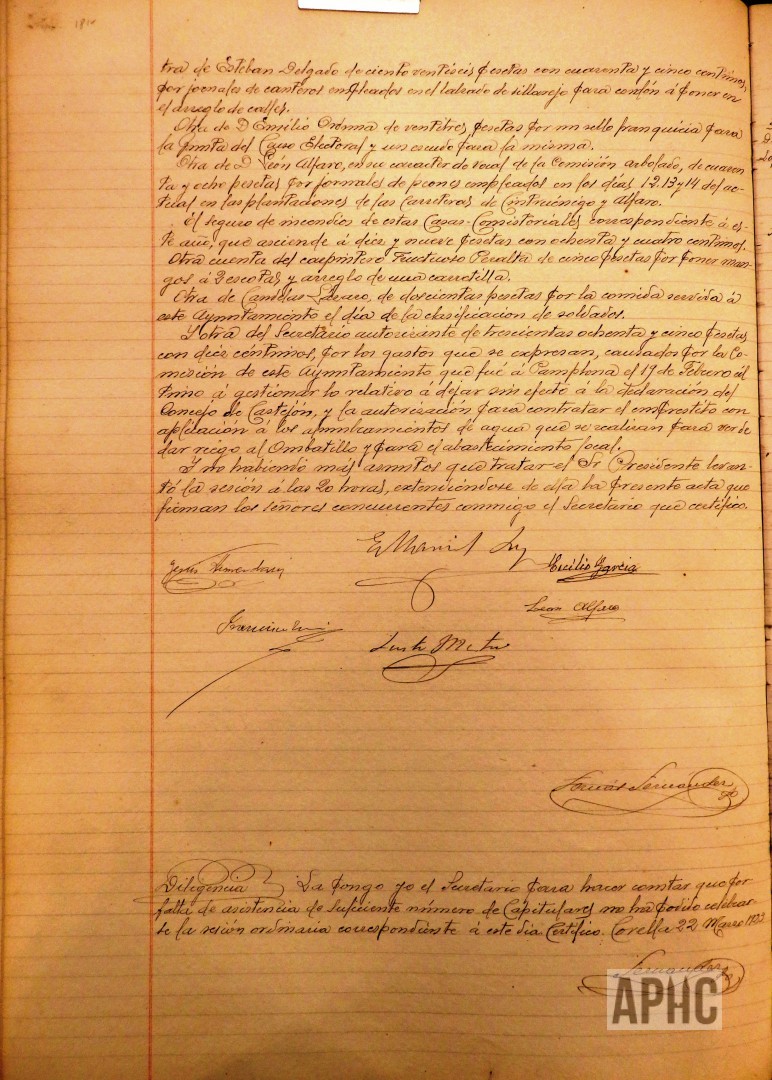 tra de Esteban Delgado de ciento ventiseis pesetas con cuarenta y cinco centimos,
por jornales de canteros empleados en el labrado de sillarejo para comfón á poner en
el arreglo de calles.
Otra de D Emilio Ordnna de ventitres, pesetas por un sello franquicia para
la Junta del Censo Electoral y un escudo para la misma.
Otra de D. León Alfaro, en su caracter de vocal de la Comisión arbolado, de cuaren
ta y ocho pesetas por jornales de peones empleados en los días 12. 13 y 14 del ac-
tual en las plantaciones de las carreteras de Cintruénigo y Alfaro.
El seguro de incendios de estas Casas-Consistoriales, correspondiente á es-
te año, que asciende á diez y nueve pesetas con ochenta y cuatro centimos.
Otra cuenta del carpintero Fructuoso Peralta de cinco pesetas por poner man-
gos á 2 escotas y arreglo de una carretilla.
Otra de Candelas Lázaro, de doscientas pesetas por la comida servida á
este Ayuntamiento el día de la clasificacion de soldados.
Y otra del Secretario autorizante de trescientas ochenta y cinco pesetas
con diez céntimos, por los gastos que se expresan, causados por la Co-
misión de este Ayuntamiento que fué á Pamplona el 19 de Febrero úl
timo á gestionar lo relativo á dejar sin efecto á la declaración del
Concejo de Castejón, y la autorizacion para contratar el emprestito con
aplicación á los alumbramientos de agua que se realizan para
dar riego al Ombatillo y para el abastecimiento local.
Y no habiendo más asuntos que tratar el Sr Presidente levan-
tó la sesión á las 20 horas, extendiéndose de ella la presente acta que
firman los señores concurrentes conmigo el Secretario que certifico.
Cecilio Garcia
Leon Alfaro
Justo
Tomás Fernandez
Diligencia La pongo yo el Secretario para hacer constar que por
falta de asistencia de suficiente número de Capitulares no ha podido celebrar-
se la sesión ordinaria correspondiente á este dia Certifico. Corella 22 Marzo
Fernandez
APHC